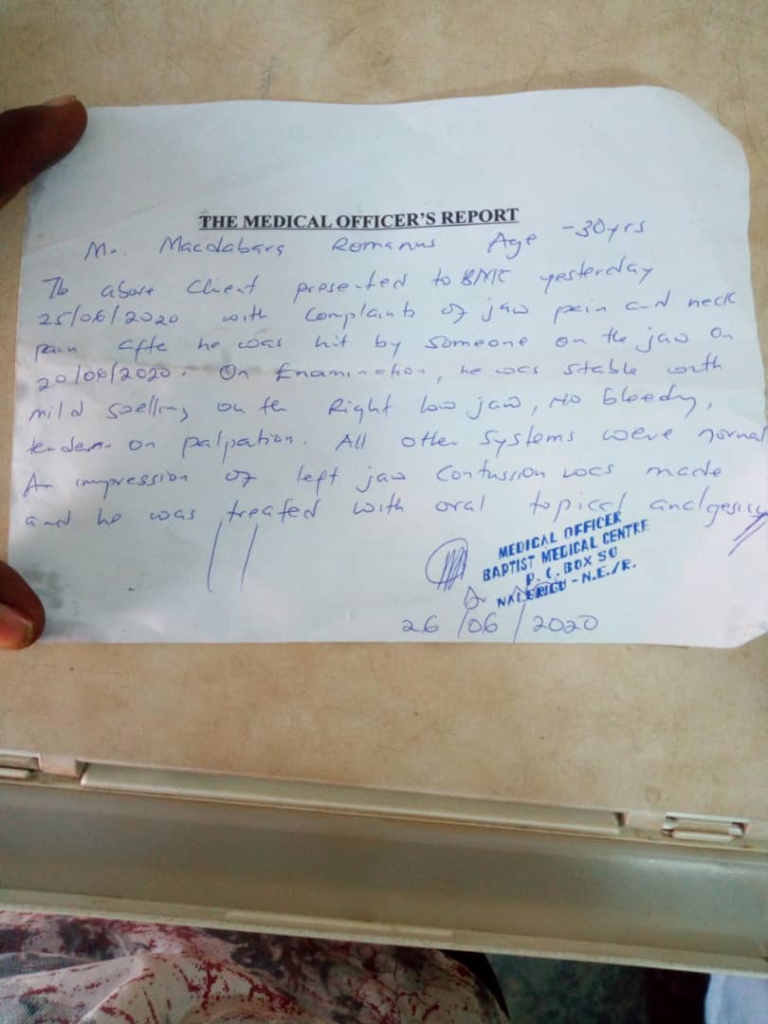 THE MEDICAL OFFICER'S REPORT
Mr. Macdabara Romanus Age -30yrs
The above Client presented to BMC yesterday
25/06/2020 with Complaints of jaw pain and neck
pain after he was hit by someone on the jaw on
20/06/2020. On Examination, he was stable with
mild swelling on the Right low jaw, No bleeding,
tender on palpation. All other systems were normal
An impression of left jaw Contussion was made
and he was treated with oral topical analgesics
MEDICAL OFFICER
BAPTIST MEDICAL CENTRE
P. O. BOX 50
NALERIGU - N.E./R.
26/06/2020